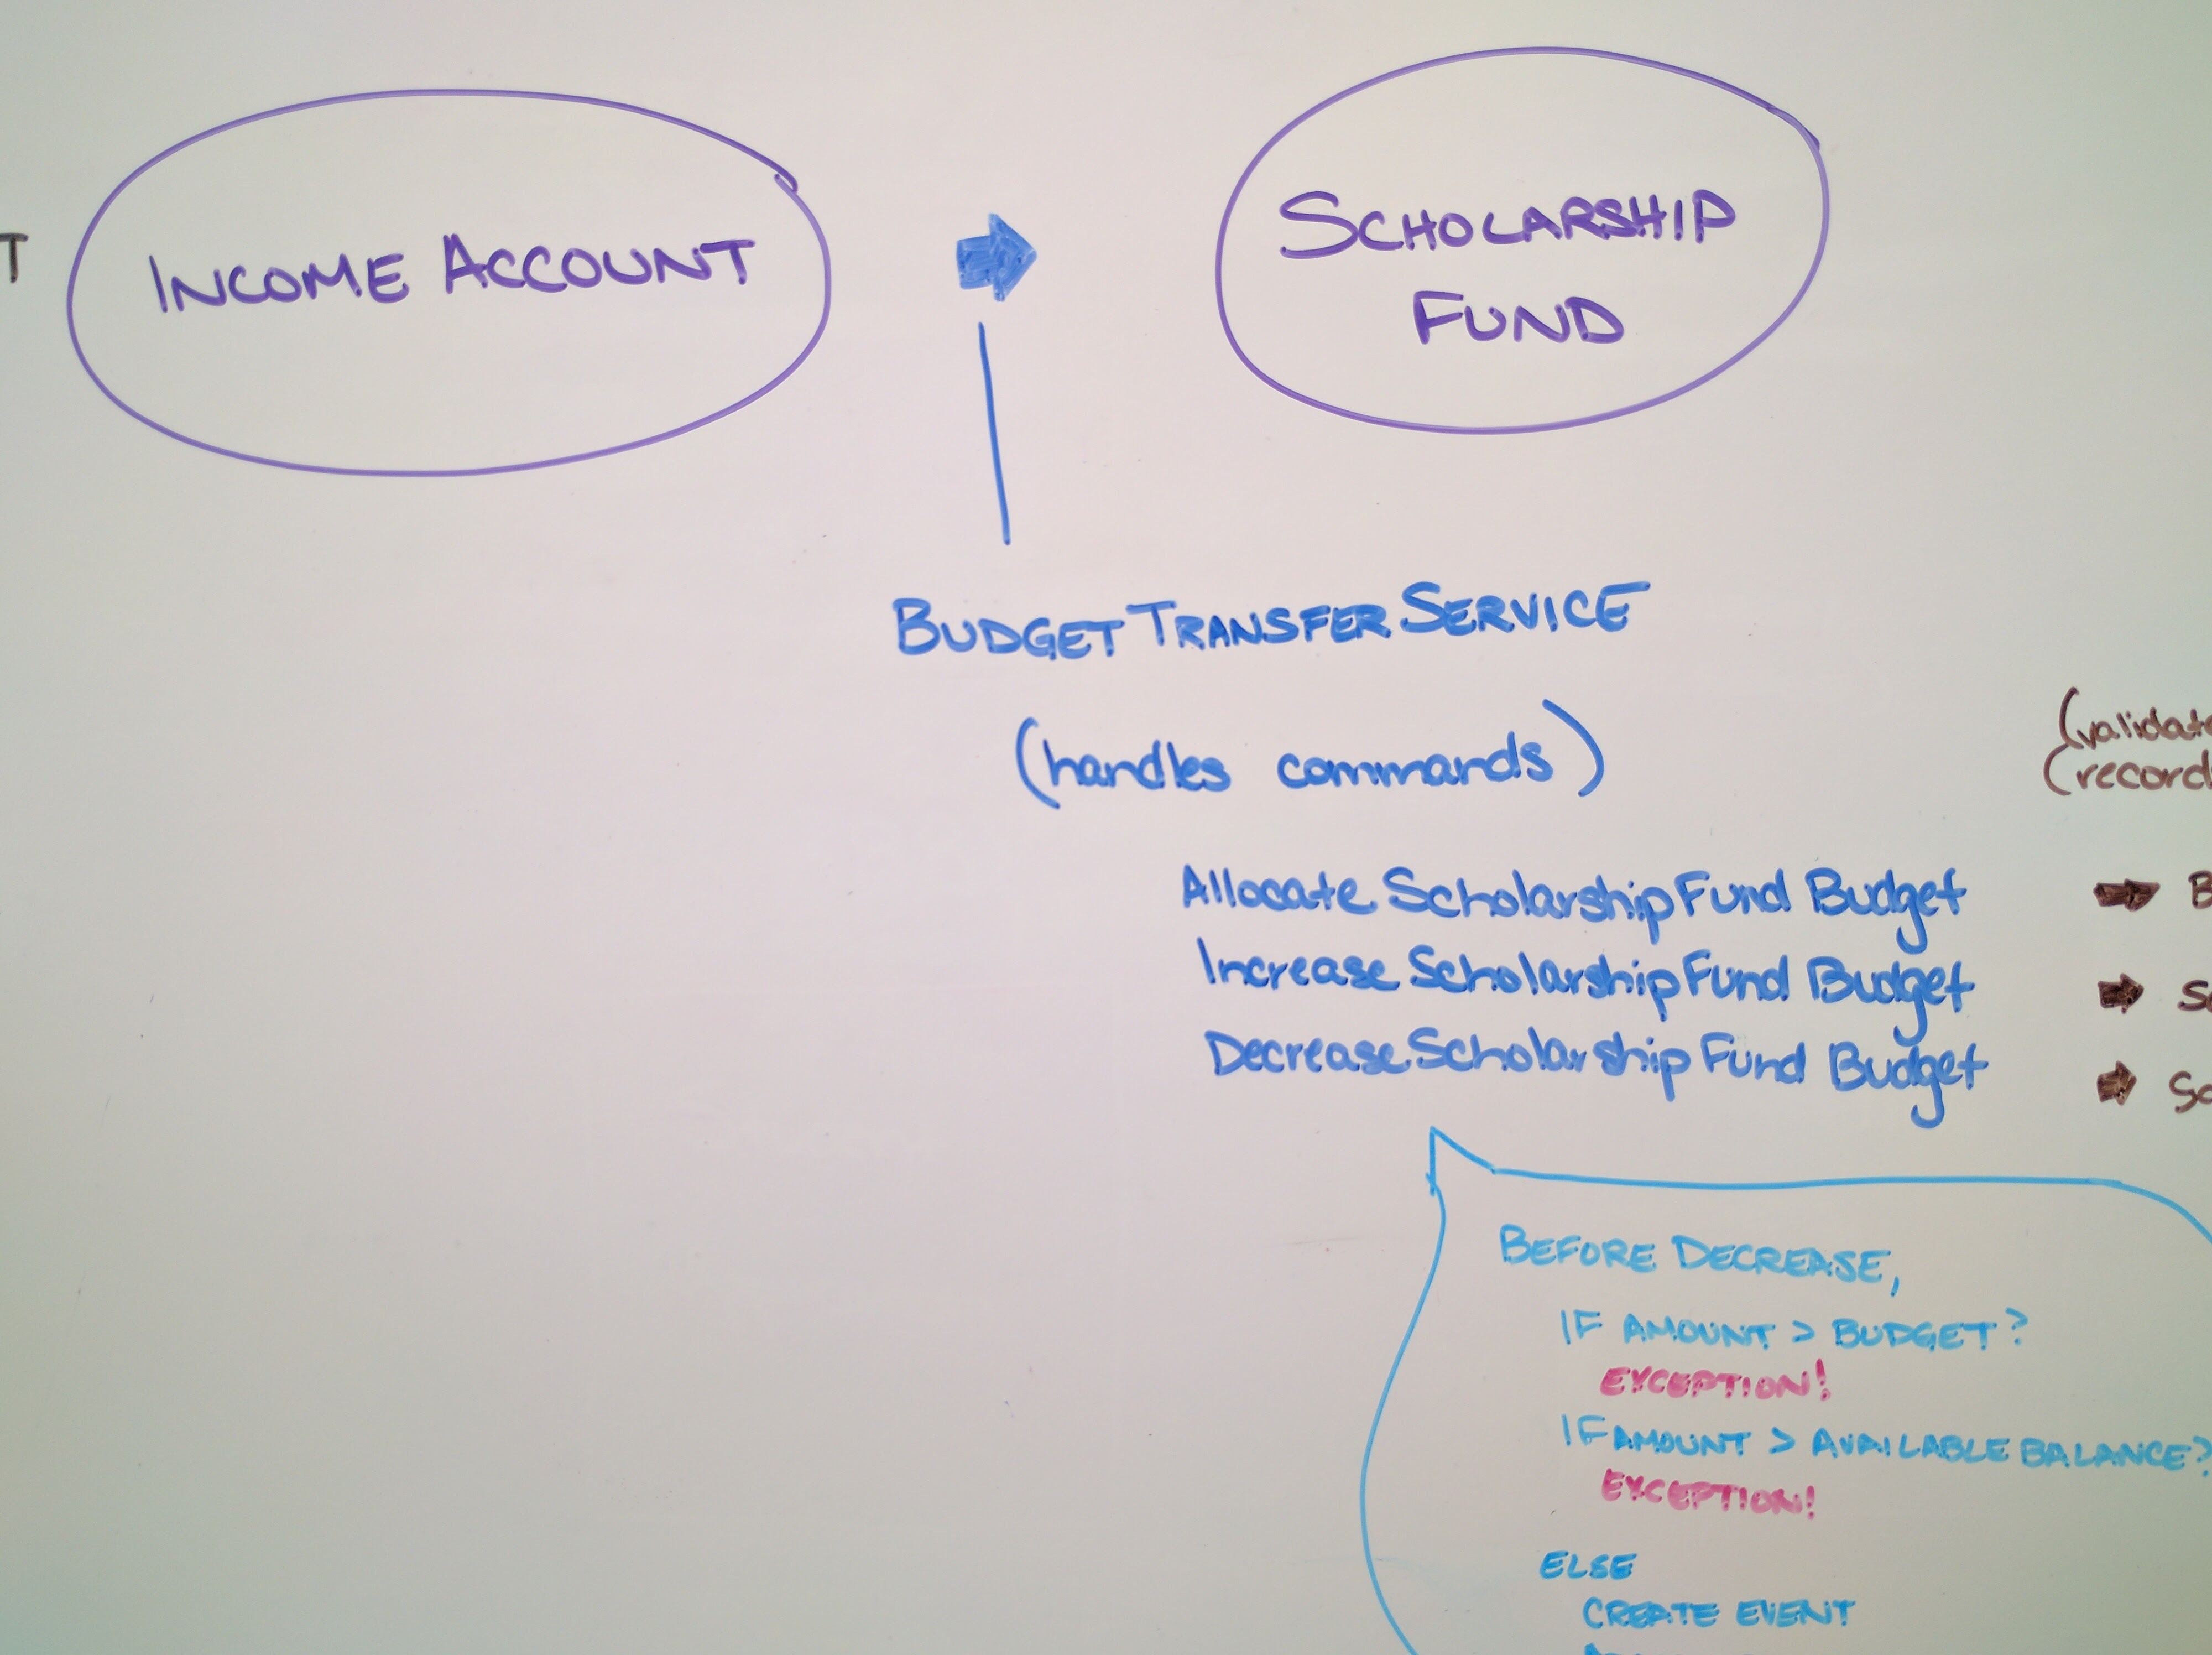 T
INCOME ACCOUNT
SCHOLARSHIP
FUND
BUDGET TRANSFER SERVICE
(handles commands)
(validate
(record
Allocate Scholarship Fund Budget
B
Increase Scholarship Fund Budget
Sc
Decrease Scholarship Fund Budget
Sc
BEFORE DECREASE,
IF AMOUNT > BUDGET?
EXCEPTION!
IF AMOUNT > AVAILABLE BALANCE?
EXCEPTION!
ELSE
CREATE EVENT